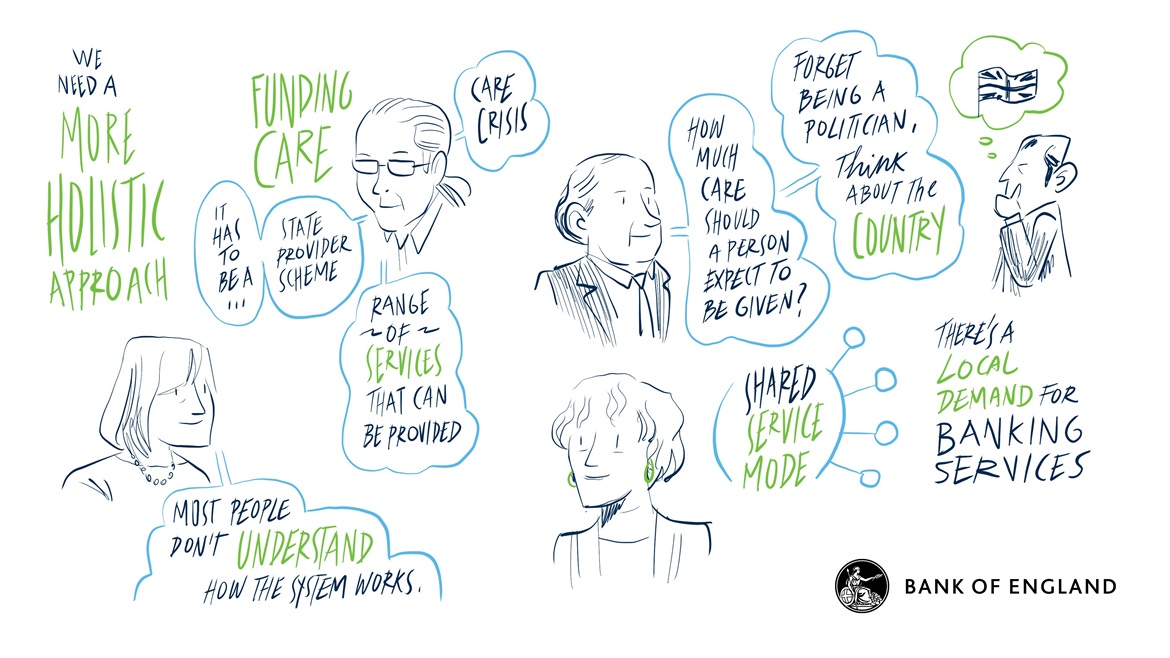 WE
NEED A
MORE
HOLISTIC
APPROACH
FUNDING
CARE
CARE
CRISIS
IT
HAS
TO
BE A
...
STATE
PROVIDER
SCHEME
RANGE
~ OF ~
SERVICES
THAT CAN
BE PROVIDED
MOST PEOPLE
DON'T UNDERSTAND
HOW THE SYSTEM WORKS.
HOW
MUCH
CARE
SHOULD
A PERSON
EXPECT TO
BE GIVEN?
FORGET
BEING A
POLITICIAN,
Think
ABOUT The
COUNTRY
SHARED
SERVICE
MODE
THERE'S A
LOCAL
DEMAND FOR
BANKING
SERVICES
BANK OF ENGLAND